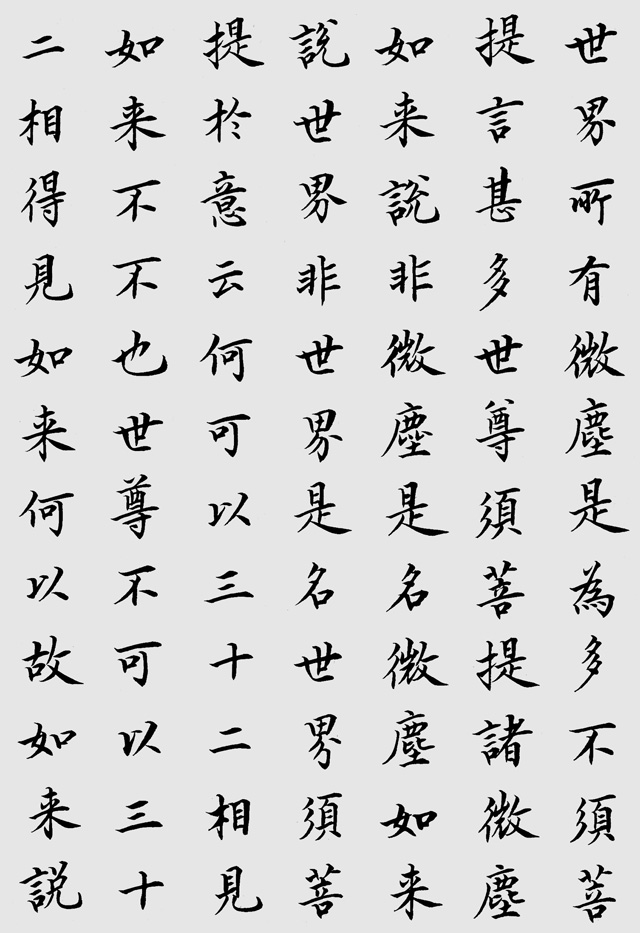 世界所有微塵是為多不須菩
提言甚多世尊須菩提諸微塵
如来說非微塵是名微塵如来
說世界非世界是名世界須菩
提於意云何可以三十二相見
如来不不也世尊不可以三十
二相得見如来何以故如来説